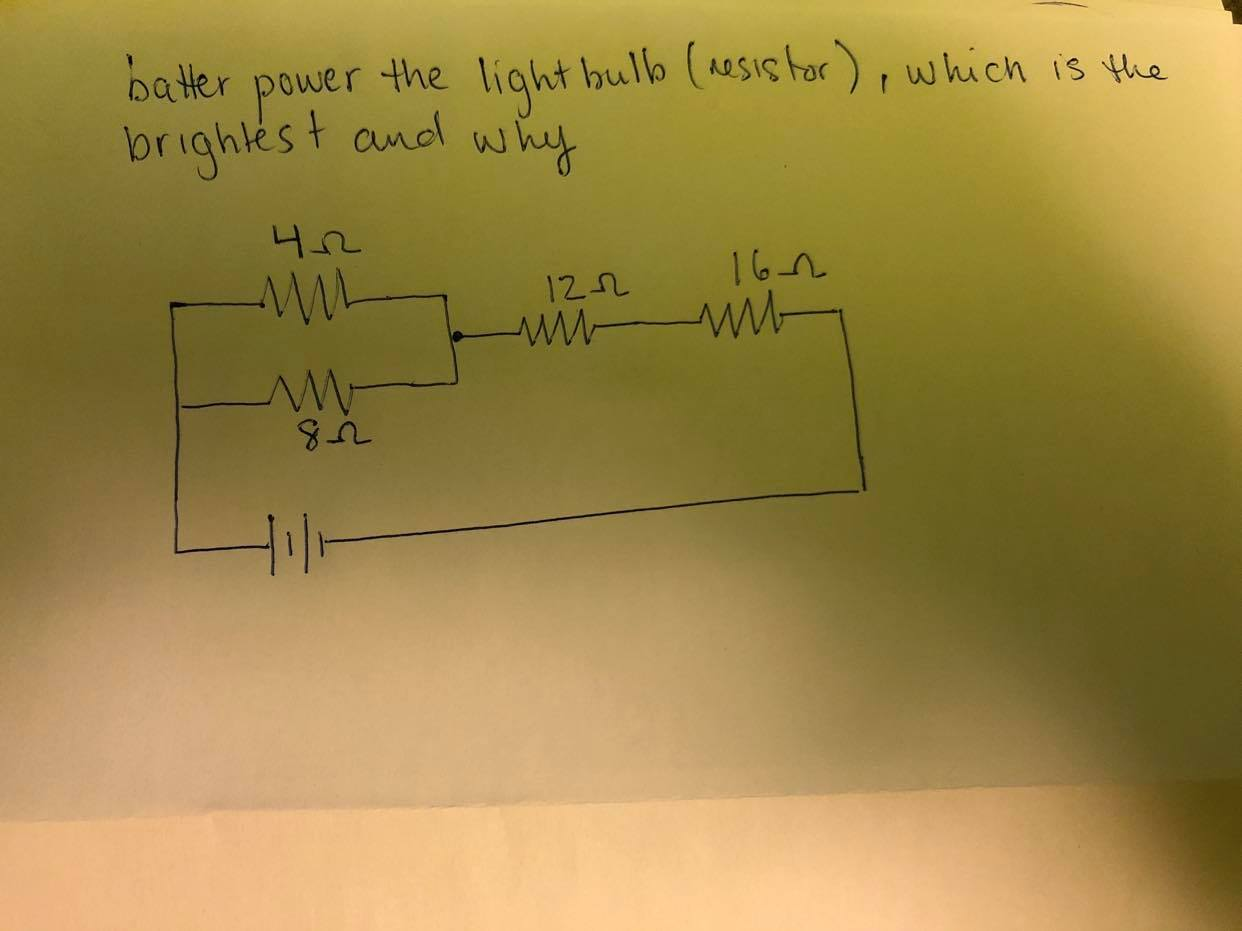 batter power the lightbulb (resistor), which is the
brightest and why
4Ω
12Ω
16Ω
8Ω